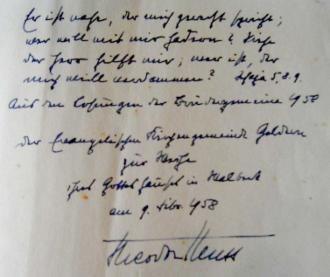 Er ist nahe, der mich gerecht spricht;
wer will mit mir hadern? Siehe
der Herr hilft mir; wer ist, der
mich will verdammen? Jesaja 5, 8. 9.
Aus den Losungen der Brüdergemeine 1958
der Evangelischen Kirchengemeinde
zur Weihe
ihres Gotteshauses in
am 9. Febr. 1958
Theodor Heuss